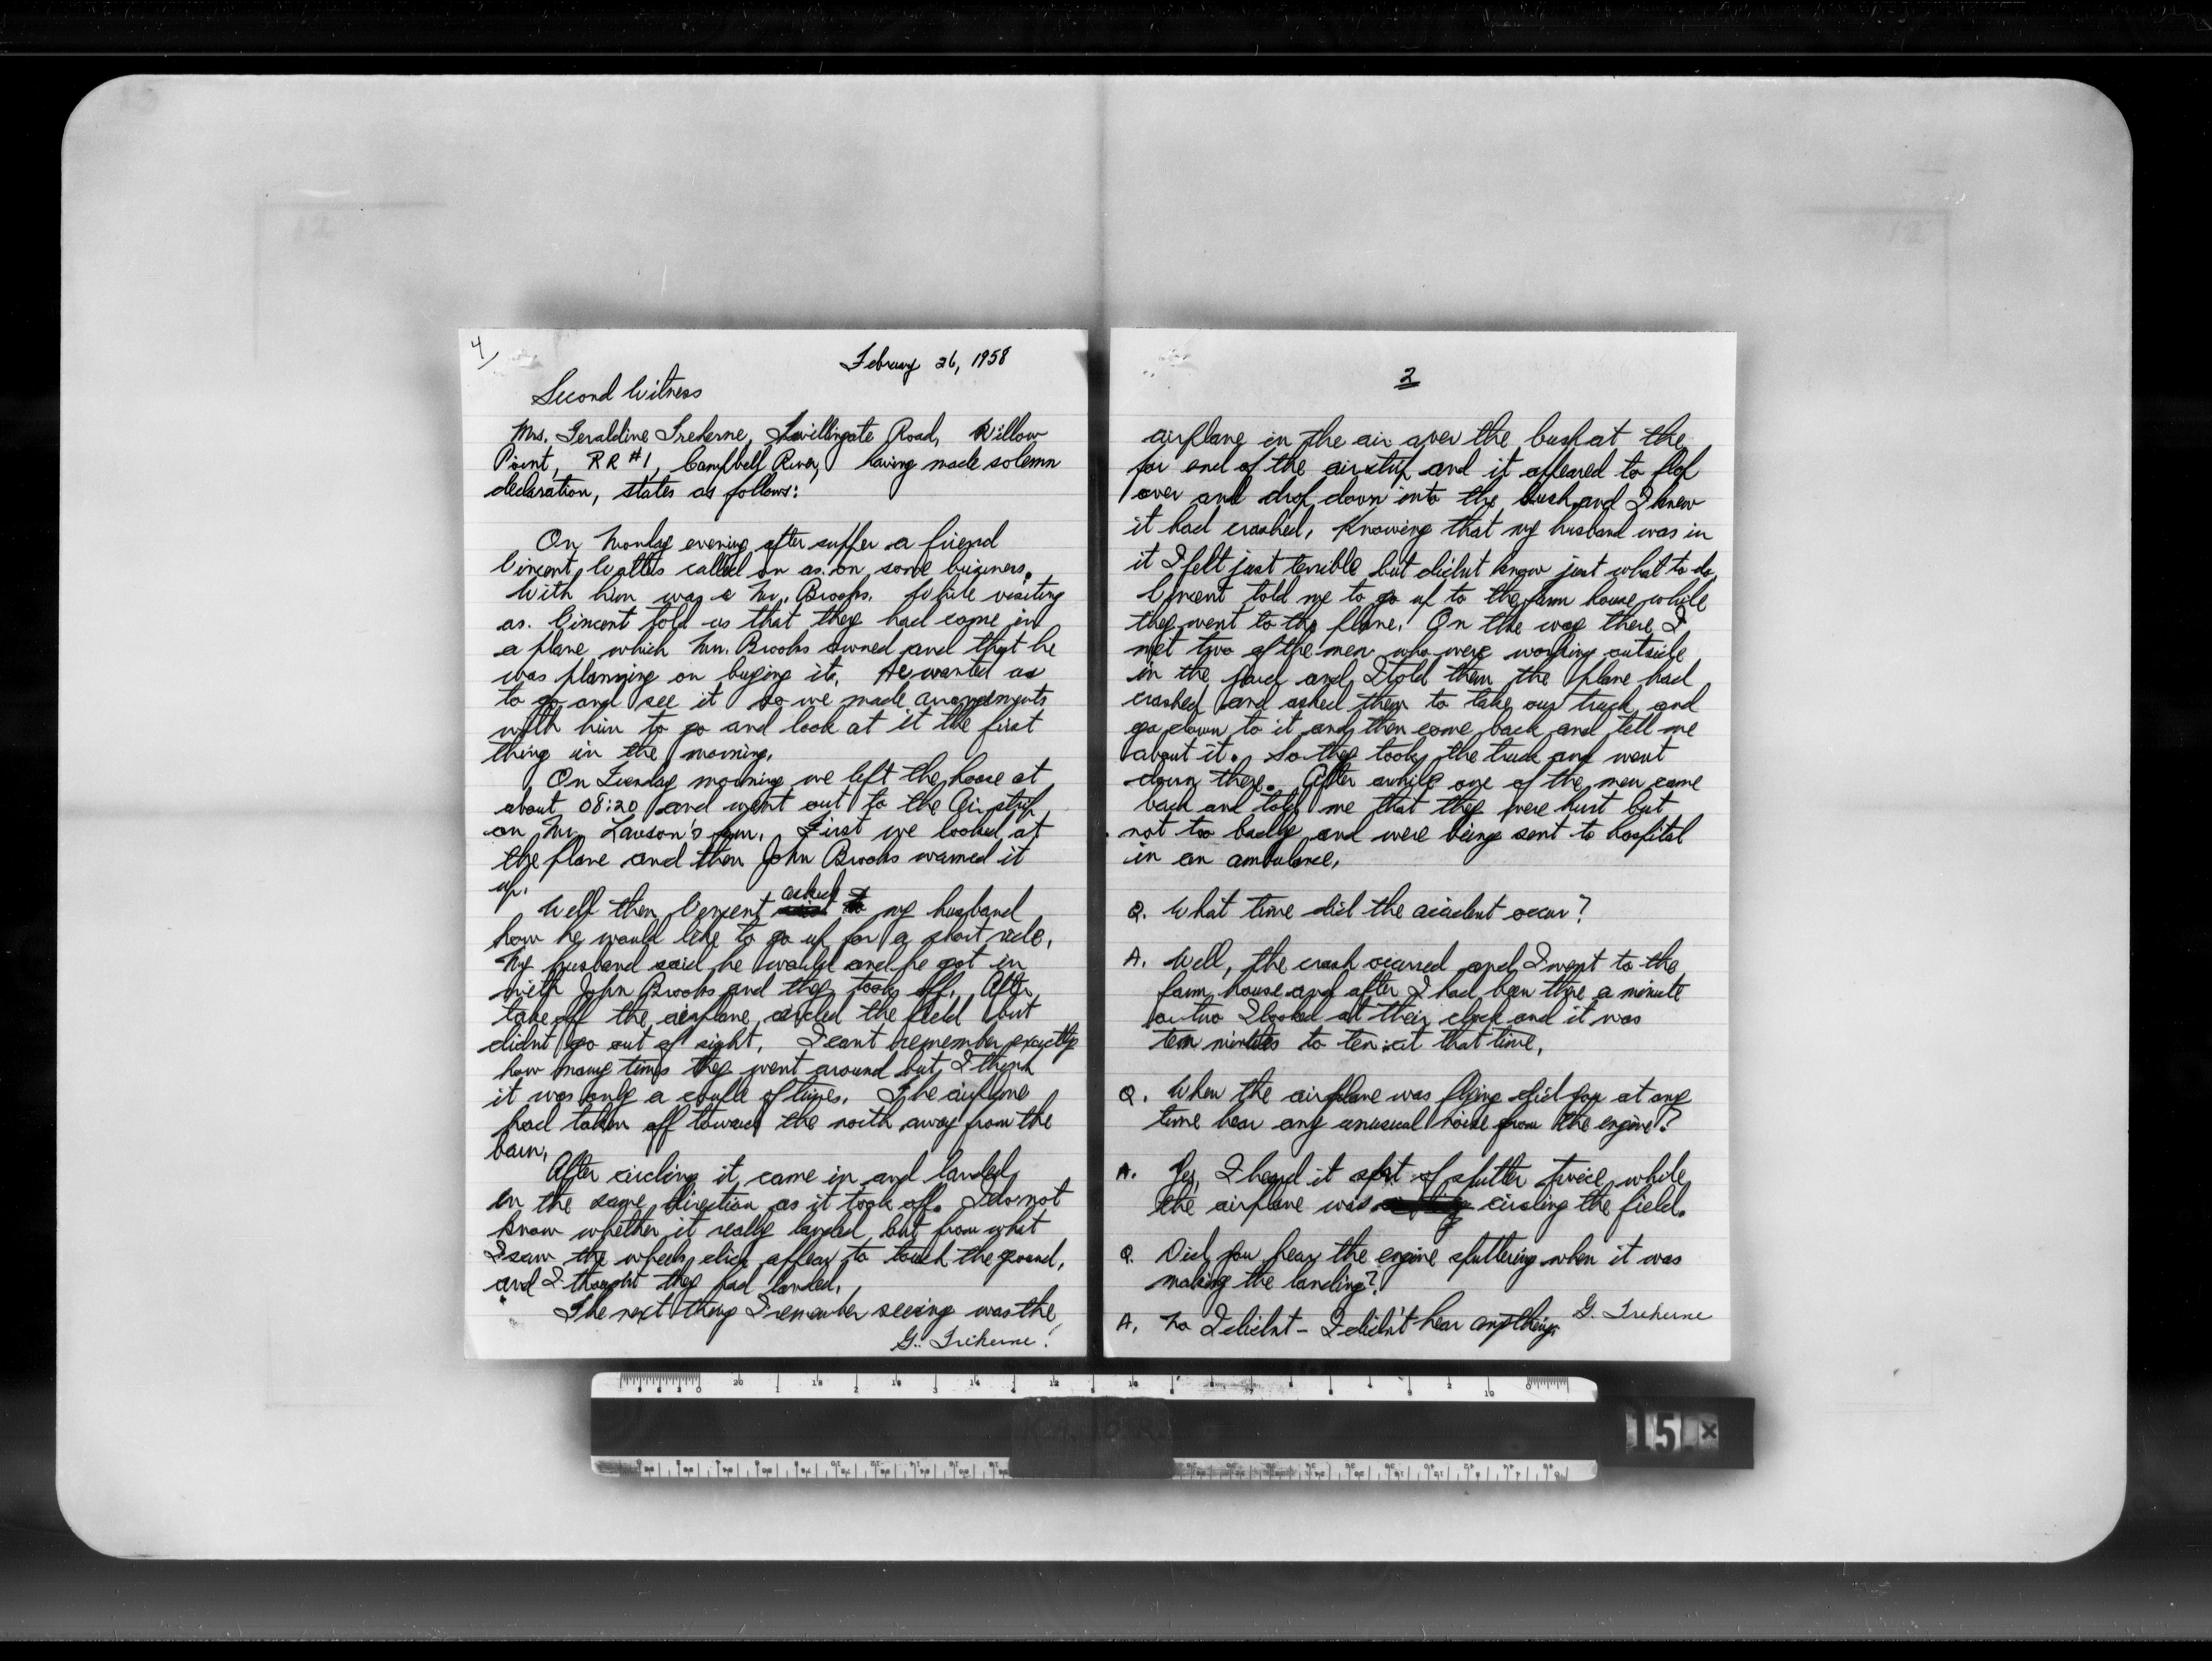 4/
February 26, 1958
Second Witness
Mrs. Geraldine Treherne, Twillingate Road, Willow
Point, RR #1, Campbell River, having made solemn
declaration, states as follows:
On Monday evening after supper a friend
Vincent Watts called on us on some business.
With him was a Mr. Brooks. While visiting
us Vincent told us that they had come in
a plane which Mr. Brooks owned and that he
was planning on buying it. He wanted us
to go and see it so we made arrangements
with him to go and look at it the first
thing in the morning.
On Tuesday morning we left the house at
about 08:20 and went out to the Airstrip
on Mr. Lawson's farm. First we looked at
the plane and then John Brooks warmed it
up.
Well then Vincent asked my husband
how he would like to go up for a short ride.
My husband said he would and he got in
with John Brooks and they took off. After
take off the airplane circled the field but
didnt go out of sight. I cant remember exactly
how many times they went around but I think
it was only a couple of times. The airplane
had taken off toward the north away from the
barn.
After circling it came in and landed
in the same direction as it took off. I do not
know whether it really landed but from what
I saw the wheels did appear to touch the ground,
and I thought they had landed.
The next thing I remember seeing was the
G. Treherne
2
airplane in the air over the bush at the
far end of the airstrip and it appeared to flop
over and drop down into the bush and I knew
it had crashed. Knowing that my husband was in
it I felt just terrible but didnt know just what to do.
Vincent told me to go up to the farm house while
they went to the plane. On the way there I
met two of the men who were working outside
in the yard and I told them the plane had
crashed and asked them to take our truck and
go down to it and then come back and tell me
about it. So they took the truck and went
down there. After awhile one of the men came
back and told me that they were hurt but
not too badly and were being sent to hospital
in an ambulance.
Q. What time did the accident occur?
A. Well, the crash occurred and I went to the
farm house and after I had been there a minute
or two I looked at their clock and it was
ten minutes to ten at that time.
Q. When the airplane was flying did you at any
time hear any unusual noise from the engine?
A. Yes, I heard it sort of sputter twice while
the airplane was circling the field.
Q. Did you hear the engine sputtering when it was
making the landing?
A. No I didnt - I didn't hear anything.
G. Treherne
15 x